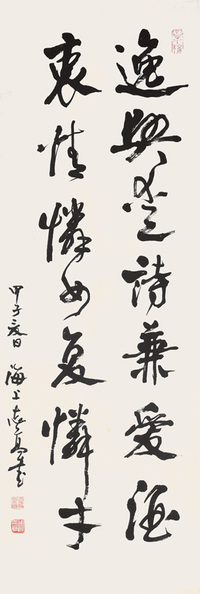 逸興耽詩兼愛酒
衷情憐女復憐才
甲子夏日 海上